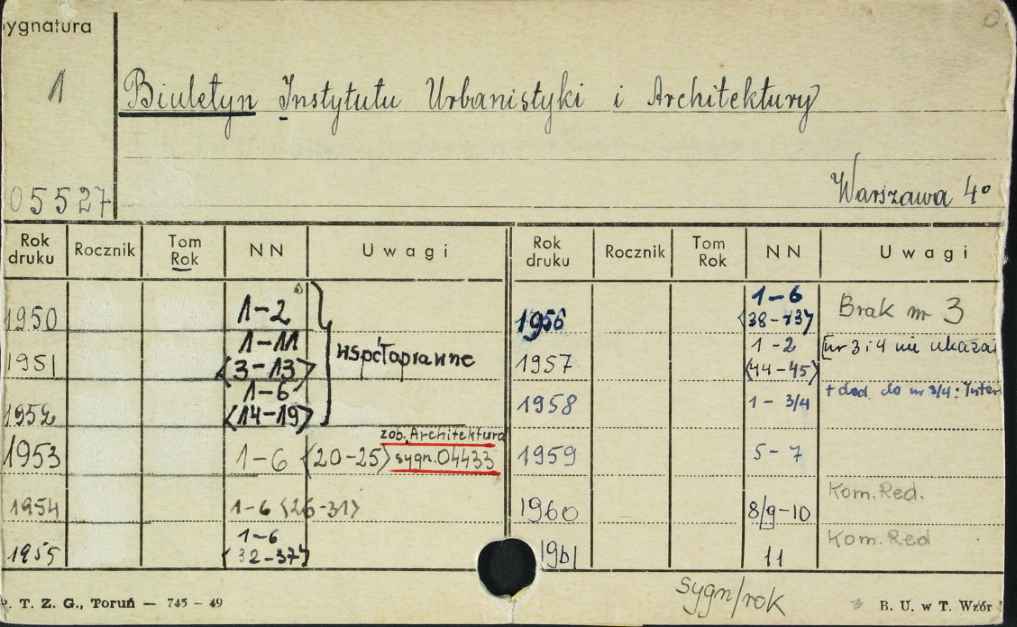 ygnatura
1
Biuletyn Instytutu Urbanistyki i Architektury
05527
Warszawa 4°
Rok druku Rocznik Tom Rok NN Uwagi Rok druku Rocznik Tom Rok NN Uwagi
1950 1-2
1951 1-11 <3-13>
1952 1-6 <14-19>
wspołoprawne
1953 1-6 <20-25> zob. Architektura sygn. 04433
1954 1-6 <26-31>
1955 1-6 <32-37>
1956 1-6 <38-43> Brak nr 3
1957 1-2 <44-45> [nr 3 i 4 nie
1958 1-3/4 + dod. do nr 3/4:
1959 5-7
1960 8/9-10 Kom. Red.
1961 11 Kom. Red
sygn/rok
. T. Z. G., Toruń — 745 - 49
B. U. w T. Wzór